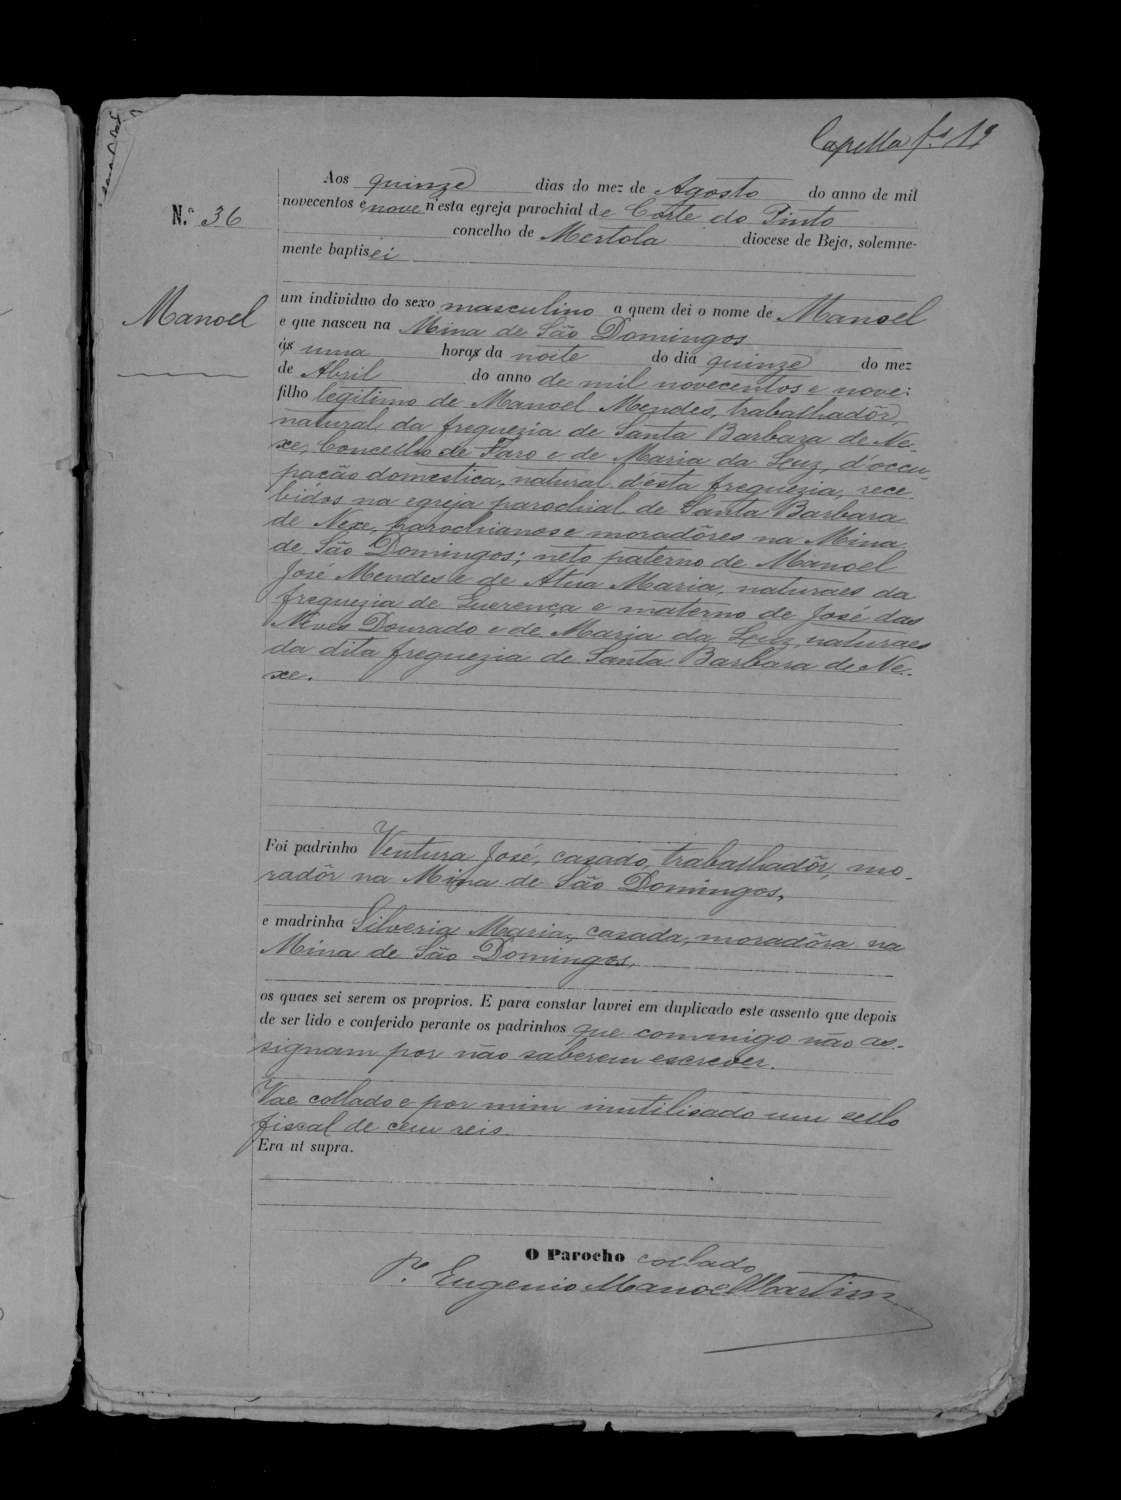 Capella fs 19
Aos quinze dias do mez de Agosto do anno de mil
novecentos e nove n'esta egreja parochial de Corte do Pinto
Nº 36
concelho de Mertola diocese de Beja, solemne-
mente baptisei
Manoel
um individuo do sexo masculino a quem dei o nome de Manoel
e que nasceu na Mina de São Domingos
ás uma horas da noite do dia quinze do mez
de Abril do anno de mil novecentos e nove:
filho legitimo de Manoel Mendes, trabalhadôr,
natural da freguezia de Santa Barbara de Ne-
xe, Concelho de Faro e de Maria da Luz, d'occu-
pacão domestica, natural d'ésta freguezia, rece-
bidos na egreja parochial de Santa Barbara
de Nexe, parochianos e moradôres na Mina
de São Domingos; neto paterno de Manoel
José Mendes e de Maria, naturaes da
freguezia de Querença e materno de José das
Neves Dourado e de Maria da Luz, naturaes
da dita freguezia de Santa Barbara de Ne-
xe.
Foi padrinho Ventura José, casado, trabalhadôr, mo-
radôr na Mina de São Domingos,
e madrinha Silveria Maria, casada, moradôra na
Mina de São Domingos,
os quaes sei serem os proprios. E para constar lavrei em duplicado este assento que depois
de ser lido e conferido perante os padrinhos que commigo não as-
signam por não saberem escrever.
Vae collado e por mim inutilisado um sello
fiscal de cem reis.
Era ut supra.
O Parocho collado
Pe. Eugenio Manoel Martins